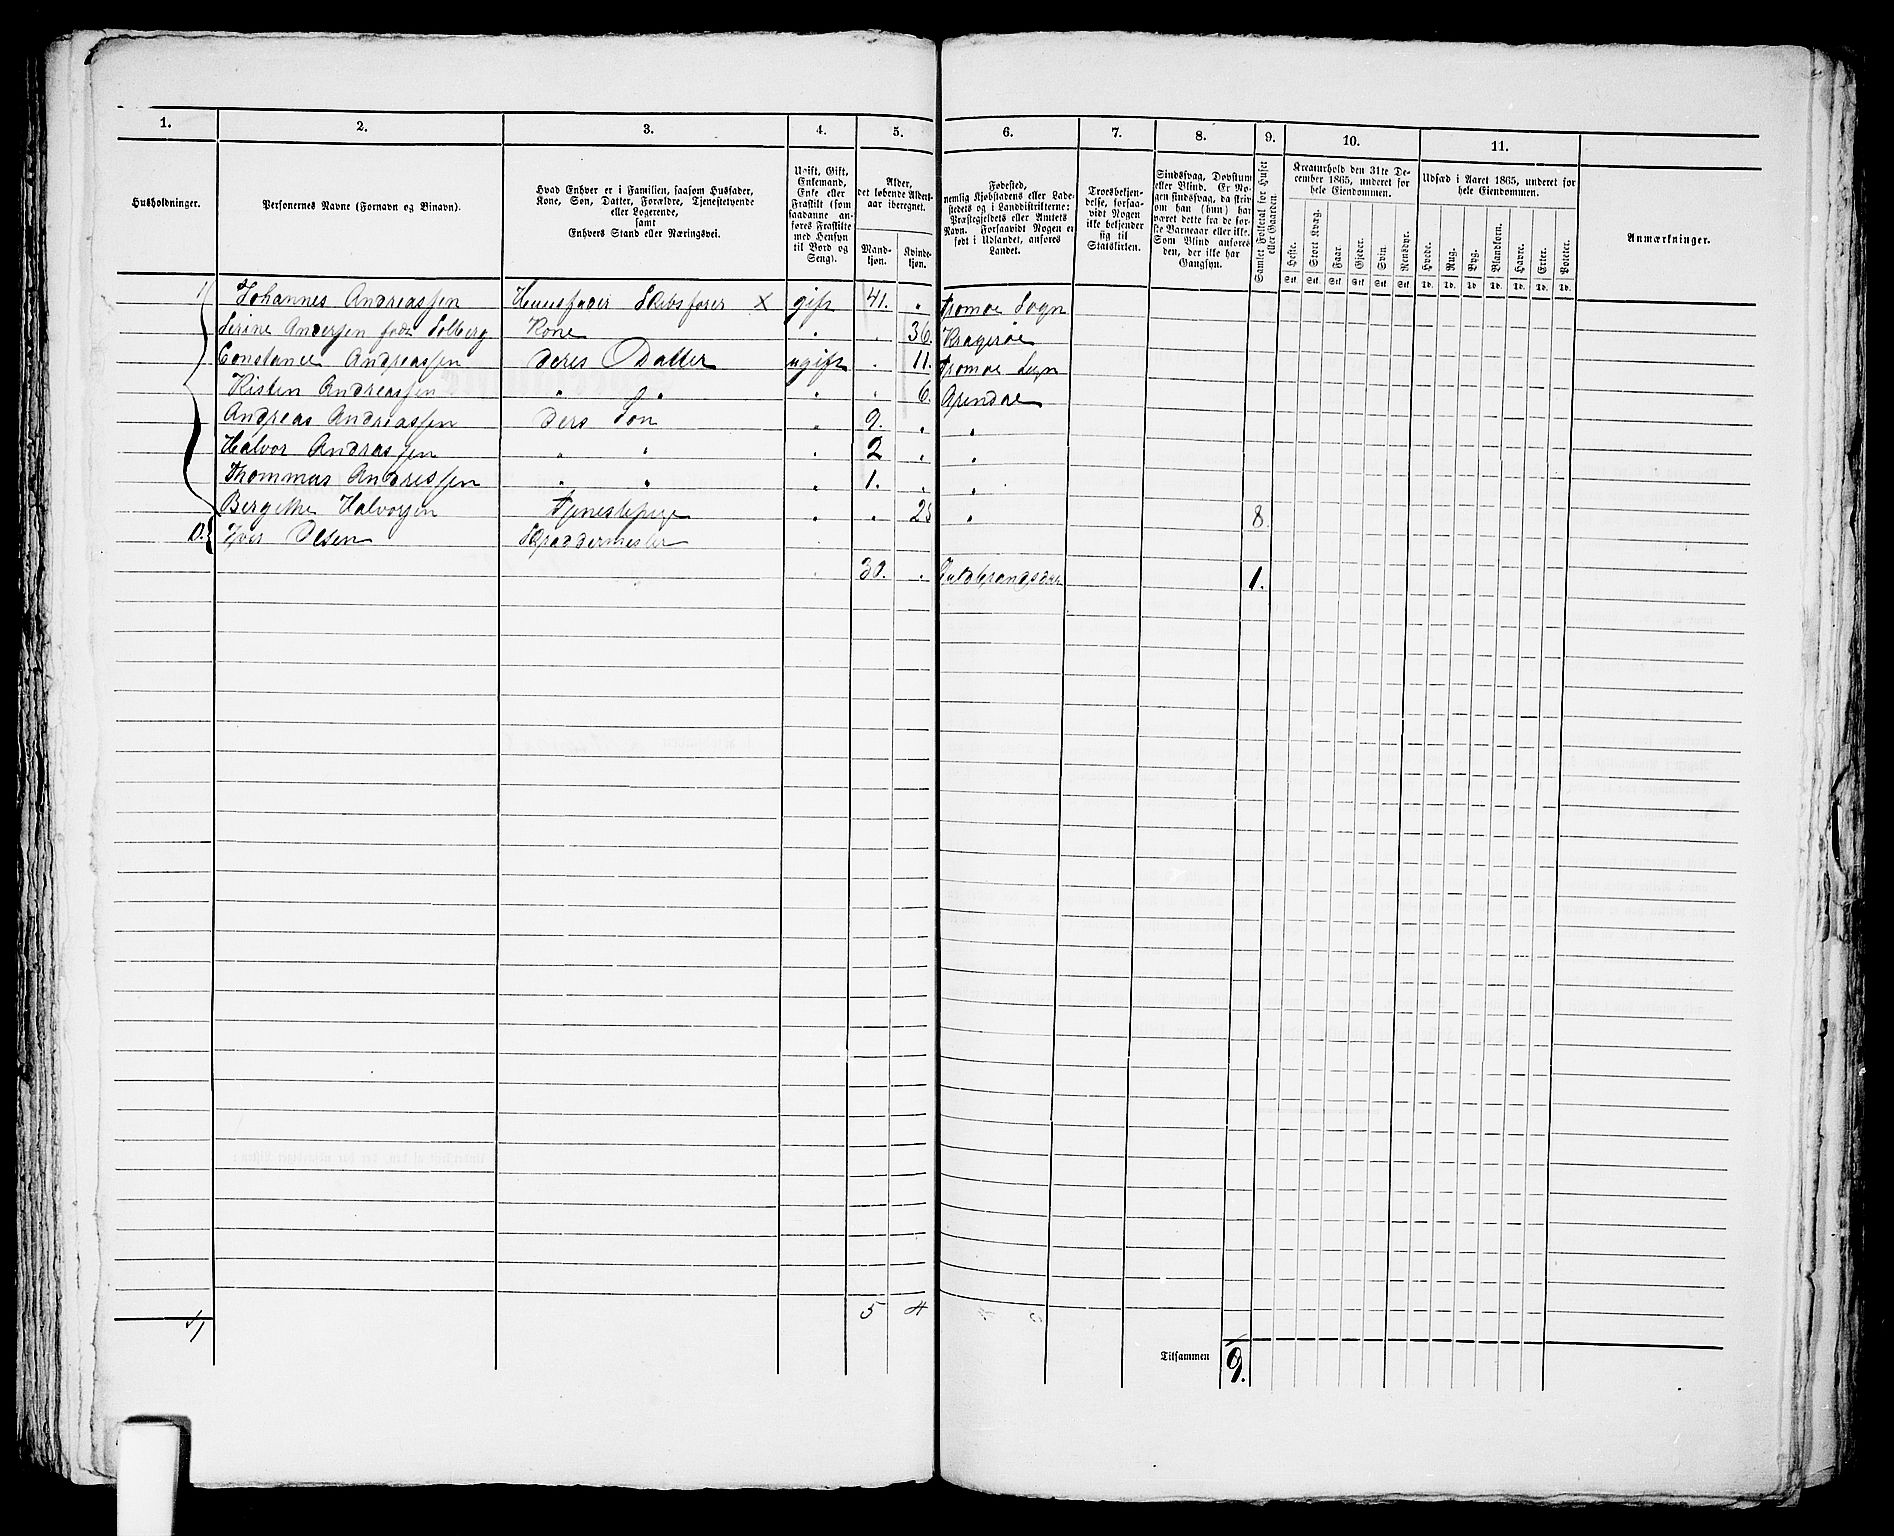 1. 2. 3. 4. 5. 6. 7. 8. 9. 10. 11.
Husholdninger.
Personernes Navne (Fornavn og Binavn).
Hvad Enhver er i Familien, saasom Husfader,
Kone, Søn, Datter, Forældre, Tjenestetyende
eller Logerende,
samt
Enhvers Stand eller Næringsvei.
Ugift, Gift,
Enkemand,
Enke eller
Fraskilt (som
saadanne an-
føres Fraskilte
med Hensyn
til Bord og
Seng).
Alder,
det løbende Alders-
aar iberegnet.
Mand-
kjøn.
Kvinde-
kjøn.
Fødested,
nemlig Kjøbstadens eller Lade-
stedets og i Landdistrikterne:
Præstegjeldets eller Amtets
Navn. Forsaavidt Nogen er
født i Udlandet, anføres
Landet.
Troesbekjen-
delse, forsaa-
vidt Nogen
ikke bekjender
sig til
Statskirken.
Sindssvag, Døvstum
eller Blind. Er No-
gen sindssvag, da skri-
ves om han (hun) har
været dette fra de før-
ste Barneaar eller ikke.
Som Blind anføres
den, der ikke har
Gangsyn.
Samlet Folketal for Huset
eller Gaarden.
Kreaturhold den 31te De-
cember 1865, underet for
hele Eiendommen.
Heste. Stort Kvæg. Faar. Gjeder. Svin. Rensdyr.
Stk. Stk. Stk. Stk. Stk. Stk.
Udsæd i Aaret 1865, underet for
hele Eiendommen.
Hvede. Rug. Byg. Blandkorn. Havre. Erter. Poteter.
Td. Td. Td. Td. Td. Td. Td.
Anmærkninger.
1 Johannes Andreassen Huusfader Skibsfører X gift 41. " Tromøe Sogn
Serine Andersen født Solberg Kone " " 36. Kragerøe
Constance Andreassen deres Datter ugift " 11. Tromøe Sogn
Kisten Andreassen " " " " 6. Arendal
Andreas Andreassen ders Søn " 9. " "
Halvor Andrassen " " " 2 " "
Thommas Andressen " " " 1. " "
Bergethe Halvorsen Tjenestepige " " " 8
Iver Olsen Skraddermester
" 30. " Guldbrandsdal 1.
5 4
Tilsammen 9.